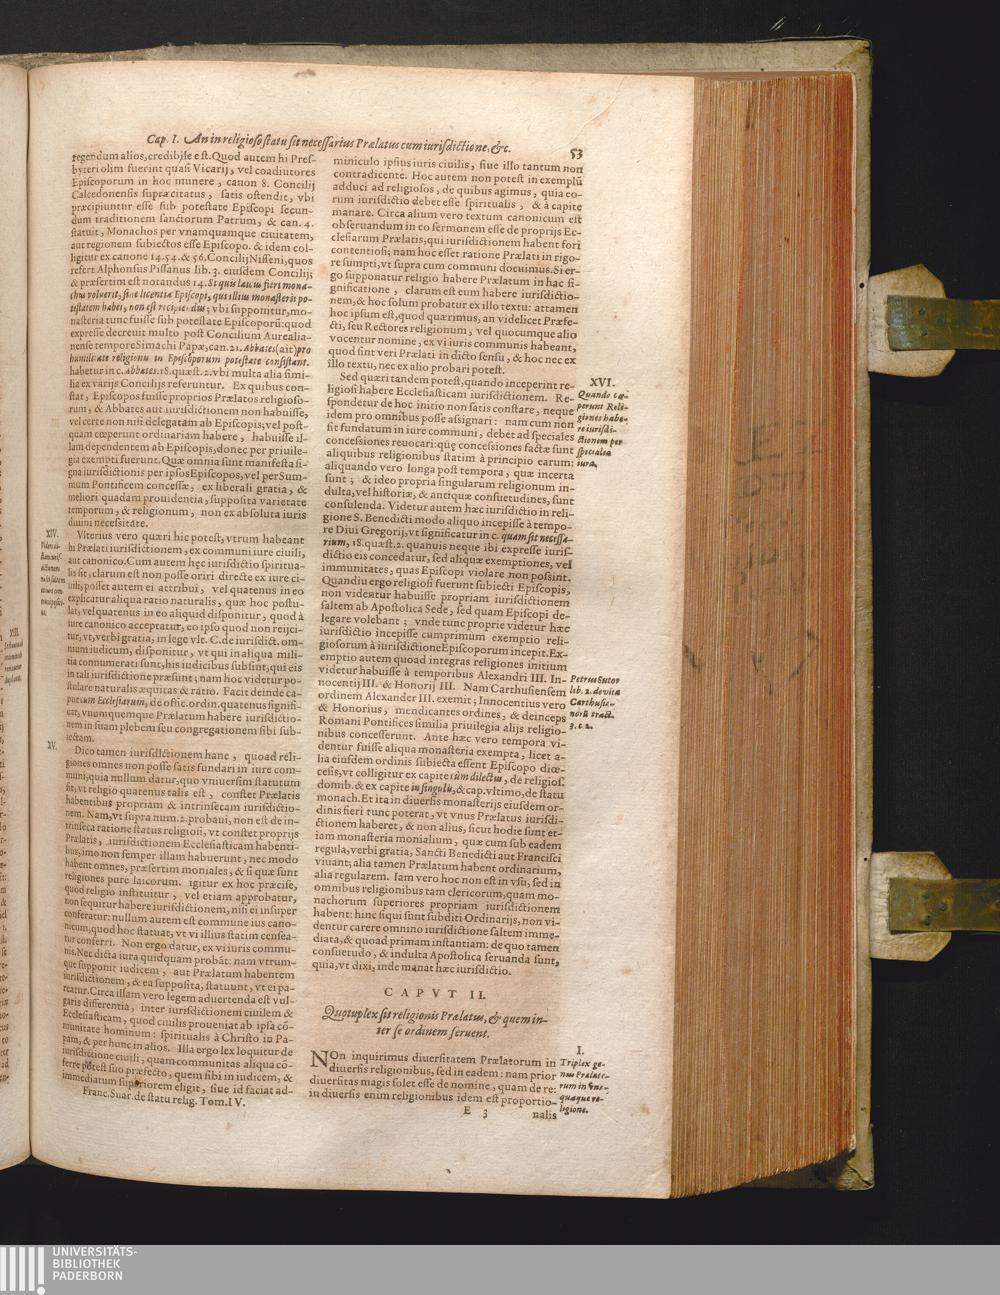 Cap. I. An in religioso statu sit necessarius Prælatus cum iurisdictione, &c.
53
regendum alios, credibile est. Quod autem hi Pres-
byteri olim fuerint quasi Vicarij, vel coadiutores
Episcoporum in hoc munere, canon 8. Concilij
Calcedonensis supra citatus, satis ostendit, vbi
præcipiuntur esse sub potestate Episcopi secun-
dum traditionem sanctorum Patrum, & can. 4.
statuit, Monachos per vnamquamque ciuitatem,
aut regionem subiectos esse Episcopo. & idem col-
ligitur ex canone 14. 54. & 56. Concilij Nisseni, quos
refert Alphonsus Pissanus lib. 3. eiusdem Concilij;
& præsertim est notandus 14. Si quis laicus fieri mona-
chus voluerit, sine licentia Episcopi, qui illius monasterij po-
testatem habet, non est recipiendus; vbi supponitur, mo-
nasteria tunc fuisse sub potestate Episcoporũ: quod
expresse decreuit multo post Concilium Aurelia-
nense tempore Simachi Papæ, can. 21. Abbates (ait) pro
humilitate religionis in Episcoporum potestate consistant.
habetur in c. Abbates. 18. quæst. 2. vbi multa alia simi-
lia ex varijs Concilijs referuntur. Ex quibus con-
stat, Episcopos fuisse proprios Prælatos religioso-
rum, & Abbates aut iurisdictionem non habuisse,
vel certe non nisi delegatam ab Episcopis; vel post-
quam cœperunt ordinariam habere, habuisse il-
lam dependentem ab Episcopis, donec per priuile-
gia exempti fuerunt. Quæ omnia sunt manifesta si-
gna iurisdictionis per ipsos Episcopos, vel per Sum-
mum Pontificem concessæ, ex liberali gratia, &
meliori quadam prouidentia, supposita varietate
temporum, & religionum, non ex absoluta iuris
diuini necessitate.
XIV.
Viterius vero quæri hic potest, vtrum habeant
hi Prælati iurisdictionem, ex communi iure ciuili,
aut canonico. Cum autem hęc iurisdictio spiritua-
lis sit, clarum est non posse oriri directe ex iure ci-
uili, posset autem ei attribui, vel quatenus in eo
explicatur aliqua ratio naturalis, quæ hoc postu-
lat, vel quatenus in eo aliquid disponitur, quod à
iure canonico acceptatur, eo ipso quod non reijci-
tur, vt, verbi gratia, in lege vlt. C. de iurisdict. om-
nium iudicum, disponitur, vt qui in aliqua mili-
tia connumerati sunt, his iudicibus subsint, qui eis
in tali iurisdictione præsunt; nam hoc videtur po-
stulare naturalis æquitas & ratio. Facit deinde ca-
put cum Ecclesiarum, de offic. ordin. quatenus signifi-
cat, vnumquemque Prælatum habere iurisdictio-
nem in suam plebem seu congregationem sibi sub-
iectam.
XV.
Dico tamen iurisdictionem hanc, quoad reli-
giones omnes non posse satis fundari in iure com-
muni, quia nullum datur, quo vniuersim statutum
sit, vt religio quatenus talis est, constet Prælatis
habentibus propriam & intrinsecam iurisdictio-
nem. Nam, vt supra num. 2. probaui, non est de in-
trinseca ratione status religiosi, vt constet proprijs
Prælatis, iurisdictionem Ecclesiasticam habenti-
bus, imo non semper illam habuerunt, nec modo
habent omnes, præsertim moniales, & si quæ sunt
religiones pure laicorum. igitur ex hoc præcise,
quod religio instituitur, vel etiam approbatur,
non sequitur habere iurisdictionem, nisi ei insuper
conferatur: nullum autem est commune ius cano-
nicum, quod hoc statuat, vt vi illius statim censea-
tur conferri. Non ergo datur, ex vi iuris commu-
nis. Nec dicta iura quidquam probãt: nam vtrum-
que supponit iudicem, aut Prælatum habentem
iurisdictionem, & ea supposita, statuunt, vt ei pa-
reatur. Circa illam vero legem aduertenda est vul-
garis differentia, inter iurisdictionem ciuilem &
Ecclesiasticam, quod ciuilis proueniat ab ipsa cõ-
munitate hominum: spiritualis à Christo in Pa-
pam, & per hunc in alios. Illa ergo lex loquitur de
iurisdictione ciuili, quam communitas aliqua cõ-
ferre potest suo præfecto, quem sibi in iudicem, &
immediatum superiorem eligit, siue id faciat ad-
Franc. Suar. de statu relig. Tom. IV.
miniculo ipsius iuris ciuilis, siue illo tantum non
contradicente. Hoc autem non potest in exemplũ
adduci ad religiosos, de quibus agimus, quia eo-
rum iurisdictio debet esse spiritualis, & à capite
manare. Circa alium vero textum canonicum est
obseruandum in eo sermonem esse de proprijs Ec-
clesiarum Prælatis, qui iurisdictionem habent fori
contentiosi; nam hoc esset ratione Prælati in rigo-
re sumpti, vt supra cum communi docuimus. Si er-
go supponatur religio habere Prælatum in hac si-
gnificatione, clarum est eum habere iurisdictio-
nem, & hoc solum probatur ex illo textu: attamen
hoc ipsum est, quod quærimus, an videlicet Præfe-
cti, seu Rectores religionum, vel quocumque alio
vocentur nomine, ex vi iuris communis habeant,
quod sint veri Prælati in dicto sensu, & hoc nec ex
illo textu, nec ex alio probari potest.
XVI.
Quando cœ-
perunt Reli-
giones habe-
re iurisdi-
ctionem per
specialia
iura.
Sed quæri tandem potest, quando inceperint re-
ligiosi habere Ecclesiasticam iurisdictionem. Re-
spondetur de hoc initio non satis constare, neque
idem pro omnibus posse assignari: nam cum non
sit fundatum in iure communi, debet ad speciales
concessiones reuocari: quę concessiones factæ sunt
aliquibus religionibus statim à principio earum:
aliquando vero longa post tempora, quæ incerta
sunt; & ideo propria singularum religionum in-
dulta, vel historiæ, & antiquæ consuetudines, sunt
consulenda. Videtur autem hæc iurisdictio in reli-
gione S. Benedicti modo aliquo incepisse à tempo-
re Diui Gregorij, vt significatur in c. quam sit necessa-
rium, 18. quæst. 2. quanuis neque ibi expresse iuris-
dictio eis concedatur, sed aliquæ exemptiones, vel
immunitates, quas Episcopi violare non possint.
Quandiu ergo religiosi fuerunt subiecti Episcopis,
non videntur habuisse propriam iurisdictionem
saltem ab Apostolica Sede, sed quam Episcopi de-
legare volebant; vnde tunc proprie videtur hæc
iurisdictio incepisse cumprimum exemptio reli-
giosorum à iurisdictione Episcoporum incepit. Ex-
emptio autem quoad integras religiones initium
videtur habuisse à temporibus Alexandri III. In-
nocentij III. & Honorij III. Nam Carthusiensem
ordinem Alexander III. exemit; Innocentius vero
& Honorius, mendicantes ordines, & deinceps
Romani Pontifices similia priuilegia alijs religio-
nibus concesserunt. Ante hæc vero tempora vi-
dentur fuisse aliqua monasteria exempta, licet a-
lia eiusdem ordinis subiecta essent Episcopo diœ-
cesis, vt colligitur ex capite cùm dilectus, de religios.
domib. & ex capite in singulis, & cap. vltimo, de statu
monach. Et ita in diuersis monasterijs eiusdem or-
dinis fieri tunc poterat, vt vnus Prælatus iurisdi-
ctionem haberet, & non alius, sicut hodie sunt et-
iam monasteria monialium, quæ cum sub eadem
regula, verbi gratia, Sancti Benedicti aut Francisci
viuant; alia tamen Prælatum habent ordinarium,
alia regularem. Iam vero hoc non est in vsu, sed in
omnibus religionibus tam clericorum, quam mo-
nachorum superiores propriam iurisdictionem
habent: hinc si qui sunt subditi Ordinarijs, non vi-
dentur carere omnino iurisdictione saltem imme-
diata, & quoad primam instantiam: de quo tamen
consuetudo, & indulta Apostolica seruanda sunt,
quia, vt dixi, inde manat hæc iurisdictio.
Petrus Sutor
lib. 2. de vita
Carthusia-
norũ tract.
3. c. 2.
CAPVT II.
Quotuplex sit religionis Prælatus, & quem in-
ter se ordinem seruent.
I.
Triplex ge-
nus Prælato-
rum in vna-
quaque re-
ligione.
NOn inquirimus diuersitatem Prælatorum in
diuersis religionibus, sed in eadem: nam prior
diuersitas magis solet esse de nomine, quam de re:
in diuersis enim religionibus idem est proportio-
E 3
nalis
UNIVERSITÄTS-
BIBLIOTHEK
PADERBORN